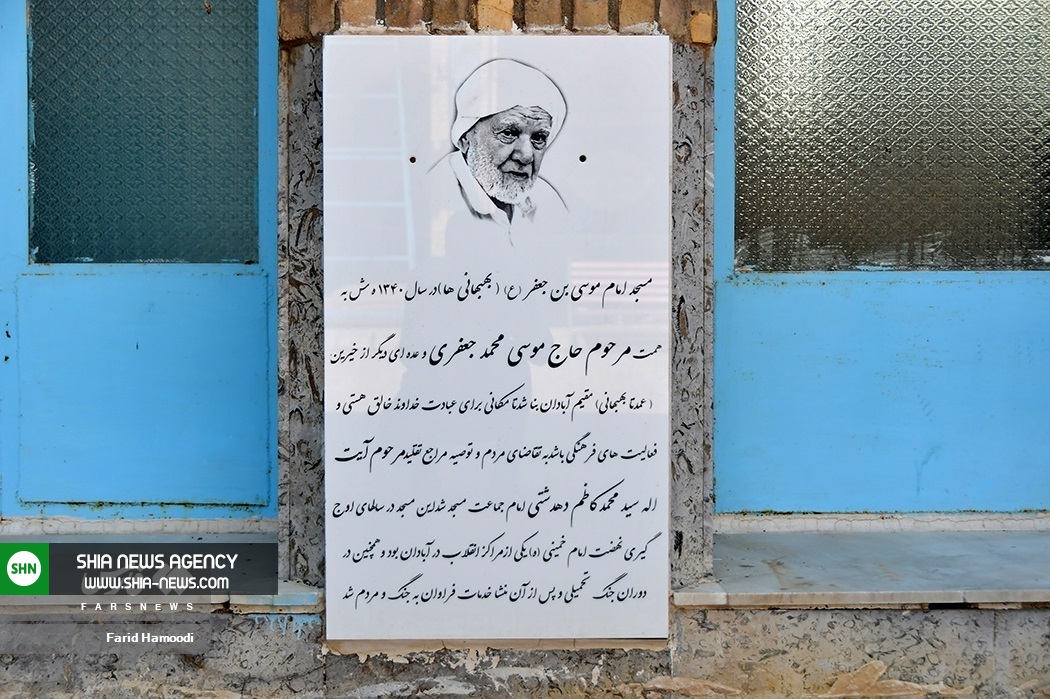 مسجد امام موسی بن جعفر (ع) ( بهبهانی ها )در سال ۱۳۴۰ ه ش به
همت مرحوم حاج موسی محمد جعفری و عده ای دیگر از خیرین
( عمدتا بهبهانی) مقیم آبادان بنا شدتا مکانی برای عبادت خداوند خالق هستی و
فعالیت های فرهنگی باشدبه تقاضای مردم و توصیه مراجع تقلیدمرحوم آیت
اله سید محمد کاظم دهدشتی امام جماعت مسجد شداین مسجد در سالهای اوج
گیری نهضت امام خمینی (ه)یکی ازمراکز انقلاب در آبادان بود و همچنین در
دوران جنگ تحمیلی و پس از آن منشا خدمات فراوان به جنگ و مردم شد
SHN
SHIA NEWS AGENCY
WWW.SHIA-NEWS.COM
FARSNEWS
Farid Hamoodi